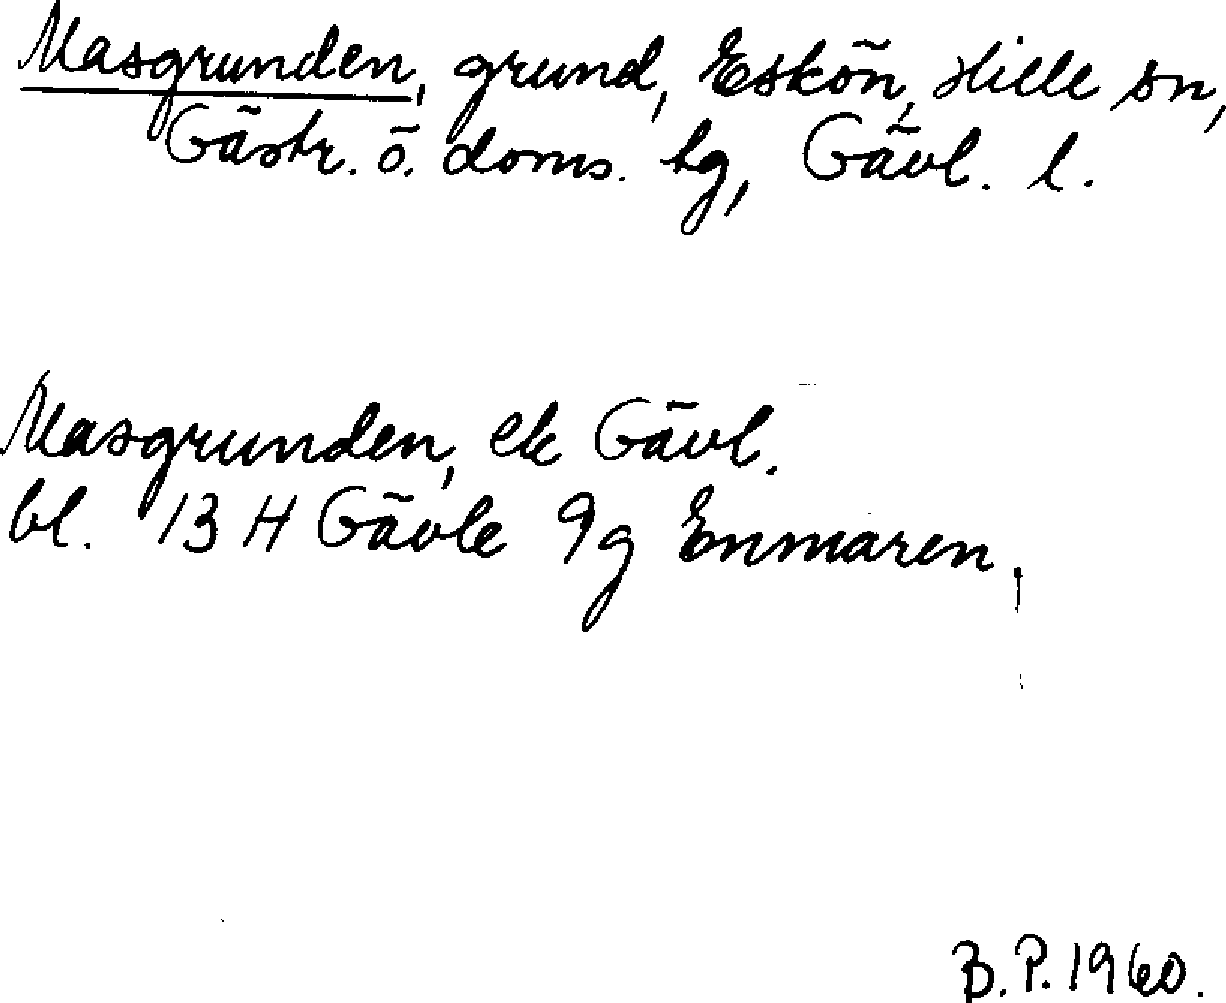 Masgrunden, grund, Eskön, Hille sn,
Gästr. ö. doms. hg, Gävl. l.
Masgrunden, ek Gävl.
bl. 13 H Gävle 9g Enmaren,
B.P. 1960.